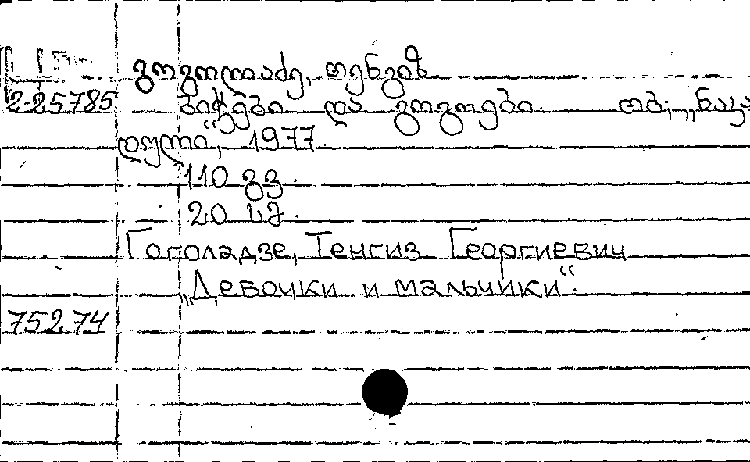 გოგოლაძე, თენგიზ
2-25785 ბიჭები და გოგოები. თბ., „ნაკა
დული“, 1977.
110 გვ.
20 კპ.
Гоголадзе, Тенгиз Георгиевич
„Девочки и мальчики“.
752.74